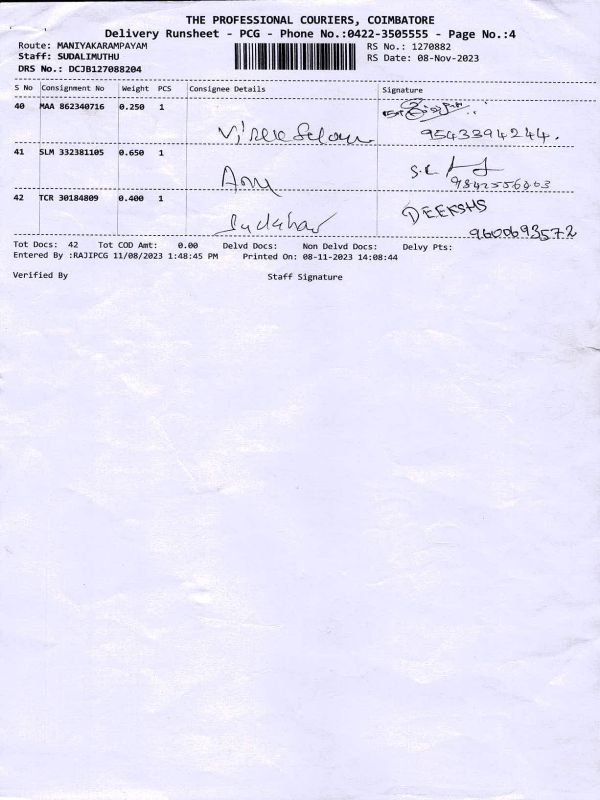 THE PROFESSIONAL COURIERS, COIMBATORE
Delivery Runsheet - PCG - Phone No.:0422-3505555 - Page No.:4
Route: MANIYAKARAMPAYAM
RS No.: 1270882
Staff: SUDALIMUTHU
RS Date: 08-Nov-2023
DRS No.: DCJB127088204
S No Consignment No Weight PCS Consignee Details Signature
40 MAA 862340716 0.250 1
9543394244.
41 SLM 332381105 0.650 1
9842556403
42 TCR 30184809 0.400 1
Sudahar DEEKSHS
9600693572
Tot Docs: 42 Tot COD Amt: 0.00 Delvd Docs: Non Delvd Docs: Delvy Pts:
Entered By :RAJIPCG 11/08/2023 1:48:45 PM Printed On: 08-11-2023 14:08:44
Verified By Staff Signature